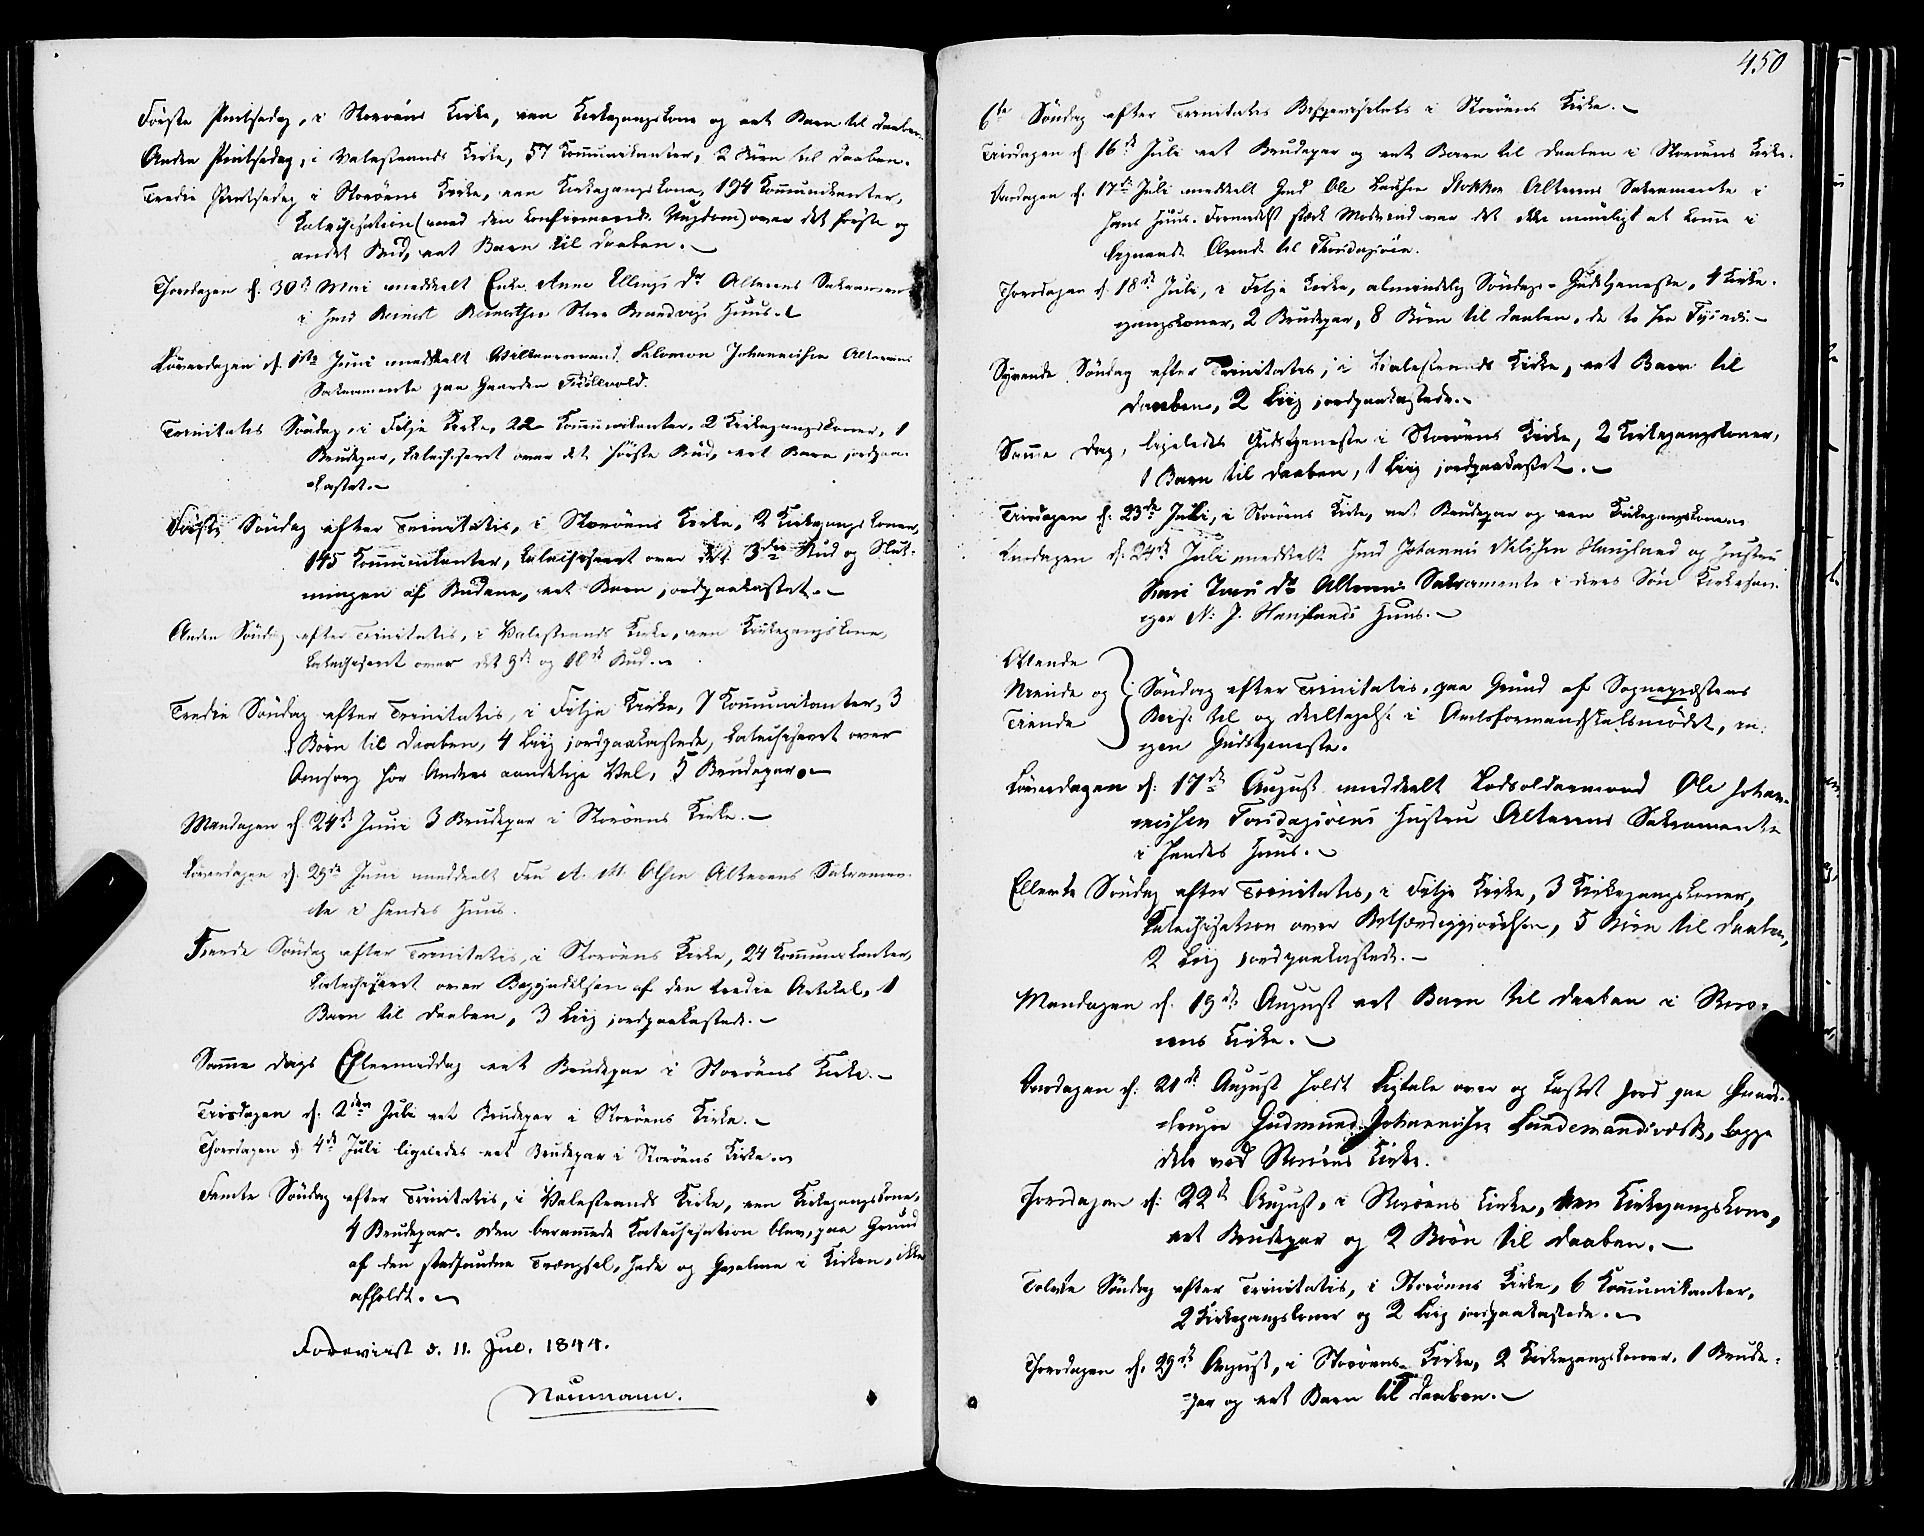 Første Pintsedag, i Storøens Kirke, een Kirkegangskone og eet Barn til Daaben.
Anden Pintsedag, i Valestrands Kirke, 57 Kommunikanter, 2 Børn til Daaben.
Tredie Pintsedag i Storøens Kirke, een Kirkegangskone, 194 Kommunikanter,
Katechisation (med den confirmerede Ungdom) over det første og
andet Bud, eet Barn til Daaben.
Thorsdagen d. 30te Mai meddeelt Enke Anne Ellings Dr Alterens Sakramente
i Huus.
Løverdagen d. 1ste Juni meddeelt Salomon Johannessen Alterens
Sakramente paa Gaarden
Trinitatis Søndag, i Fitje Kirke, 22 Kommunikanter, 2 Kirkegangskoner, 1
Brudepar, katechiseret over det første Bud, eet Barn jordpaa-
kastet.
Første Søndag efter Trinitatis, i Storøens Kirke, 2 Kirkegangskoner,
145 Kommunikanter, katechiseret over det 3die Bud og Slut-
ningen af Budene, eet Barn jordpaakastet.
Anden Søndag efter Trinitatis, i Valestrands Kirke, een Kirkegangskone,
katechiseret over det 9de og 10de Bud.
Tredie Søndag efter Trinitatis, i Fitje Kirke, 7 Kommunikanter, 3
Børn til Daaben, 4 Liig jordpaakastede, katechiseret over
Omsorg for Andres aandelige Vel, 5 Brudepar.
Mandagen d. 24de Juni 3 Brudepar i Storøens Kirke.
Løverdagen d. 29de Juni meddeelt Fru A. M. Olsen Alterens Sakramen-
te i hendes Huus.
Fierde Søndag efter Trinitatis, i Storøens Kirke, 24 Kommunikanter,
katechiseret over Begyndelsen af den tredie Artikel, 1
Barn til Daaben, 3 Liig jordpaakastede.
Samme Dags Eftermiddag eet Brudepar i Storøens Kirke.
Tirsdagen d. 2den Juli eet Brudepar i Storøens Kirke.
Thorsdagen d. 4de Juli ligeledes eet Brudepar i Storøens Kirke.
Femte Søndag efter Trinitatis, i Valestrands Kirke, een Kirkegangskone,
4 Brudepar. Den berammede Katechisation blev, paa Grund
af den stedfundne Trængsel, Hede og Qvalme i Kirken, ikke
afholdt.
Foreviist d. 11. Jul. 1844.
Neumann.
450
6te Søndag efter Trinitatis Bispevisitats i Storøens Kirke.
Tirsdagen d. 16de Juli eet Brudepar og eet Barn til Daaben i Storøens Kirke.
Onsdagen d. 17de Juli meddeelt Gmd Ole Larssen Stokken Alterens Sakramente i
hans Huus. Formedelst stærk Modvind var det ikke mueligt at komme i
lignende Ærende til
Thorsdagen d. 18de Juli, i Fitje Kirke, almindelig Søndags-Gudstjeneste, 4 Kirke-
gangskoner, 2 Brudepar, 8 Børn til Daaben, de to fra
Syvende Søndag efter Trinitatis, i Valestrands Kirke, eet Barn til
Daaben, 2 Liig jordpaakastede.
Samme Dag, ligeledes Gudstjeneste i Storøens Kirke, 2 Kirkegangskoner,
1 Barn til Daaben, 1 Liig jordpaakastet.
Tirsdagen d. 23de Juli, i Storøens Kirke, eet Brudepar og een Kirkegangskone.
Onsdagen d. 24de Juli meddeelt Gmd Johannes Nelssen Haugland og Hustru
Dr Alterens Sakramente i deres Søn Kirkesan-
ger N. J. Hauglands Huus.
Ottende
Niende og } Søndag efter Trinitatis, paa Grund af Sognepræstens
Tiende } Reise til og Deeltagelse i Amtsformandskabsmødet, in-
gen Gudstjeneste.
Løverdagen d. 17de August meddeelt Lodsoldermand Ole Johan-
nessen Hustru Alterens Sakramente
i hendes Huus.
Ellevte Søndag efter Trinitatis, i Fitje Kirke, 3 Kirkegangskoner,
Katechisation over Retfærdiggiørelsen, 5 Børn til Daaben,
2 Liig jordpaakastede.
Mandagen d. 19de August eet Barn til Daaben i Storø-
ens Kirke.
Onsdagen d. 21de August holdt Ligtale over og kastet Jord paa Gaard-
bruger Gudmund Johannessen Lundemandsværk, begge
Dele ved Storøens Kirke.
Thorsdagen d. 22de August, i Storøens Kirke, een Kirkegangskone,
eet Brudepar og 2 Børn til Daaben.
Tolvte Søndag efter Trinitatis, i Storøens Kirke, 6 Kommunikanter,
2 Kirkegangskoner og 2 Liig jordpaakastede.
Thorsdagen d. 29de August, i Storøens Kirke, 2 Kirkegangskoner, 1 Brude-
par og eet Barn til Daaben.